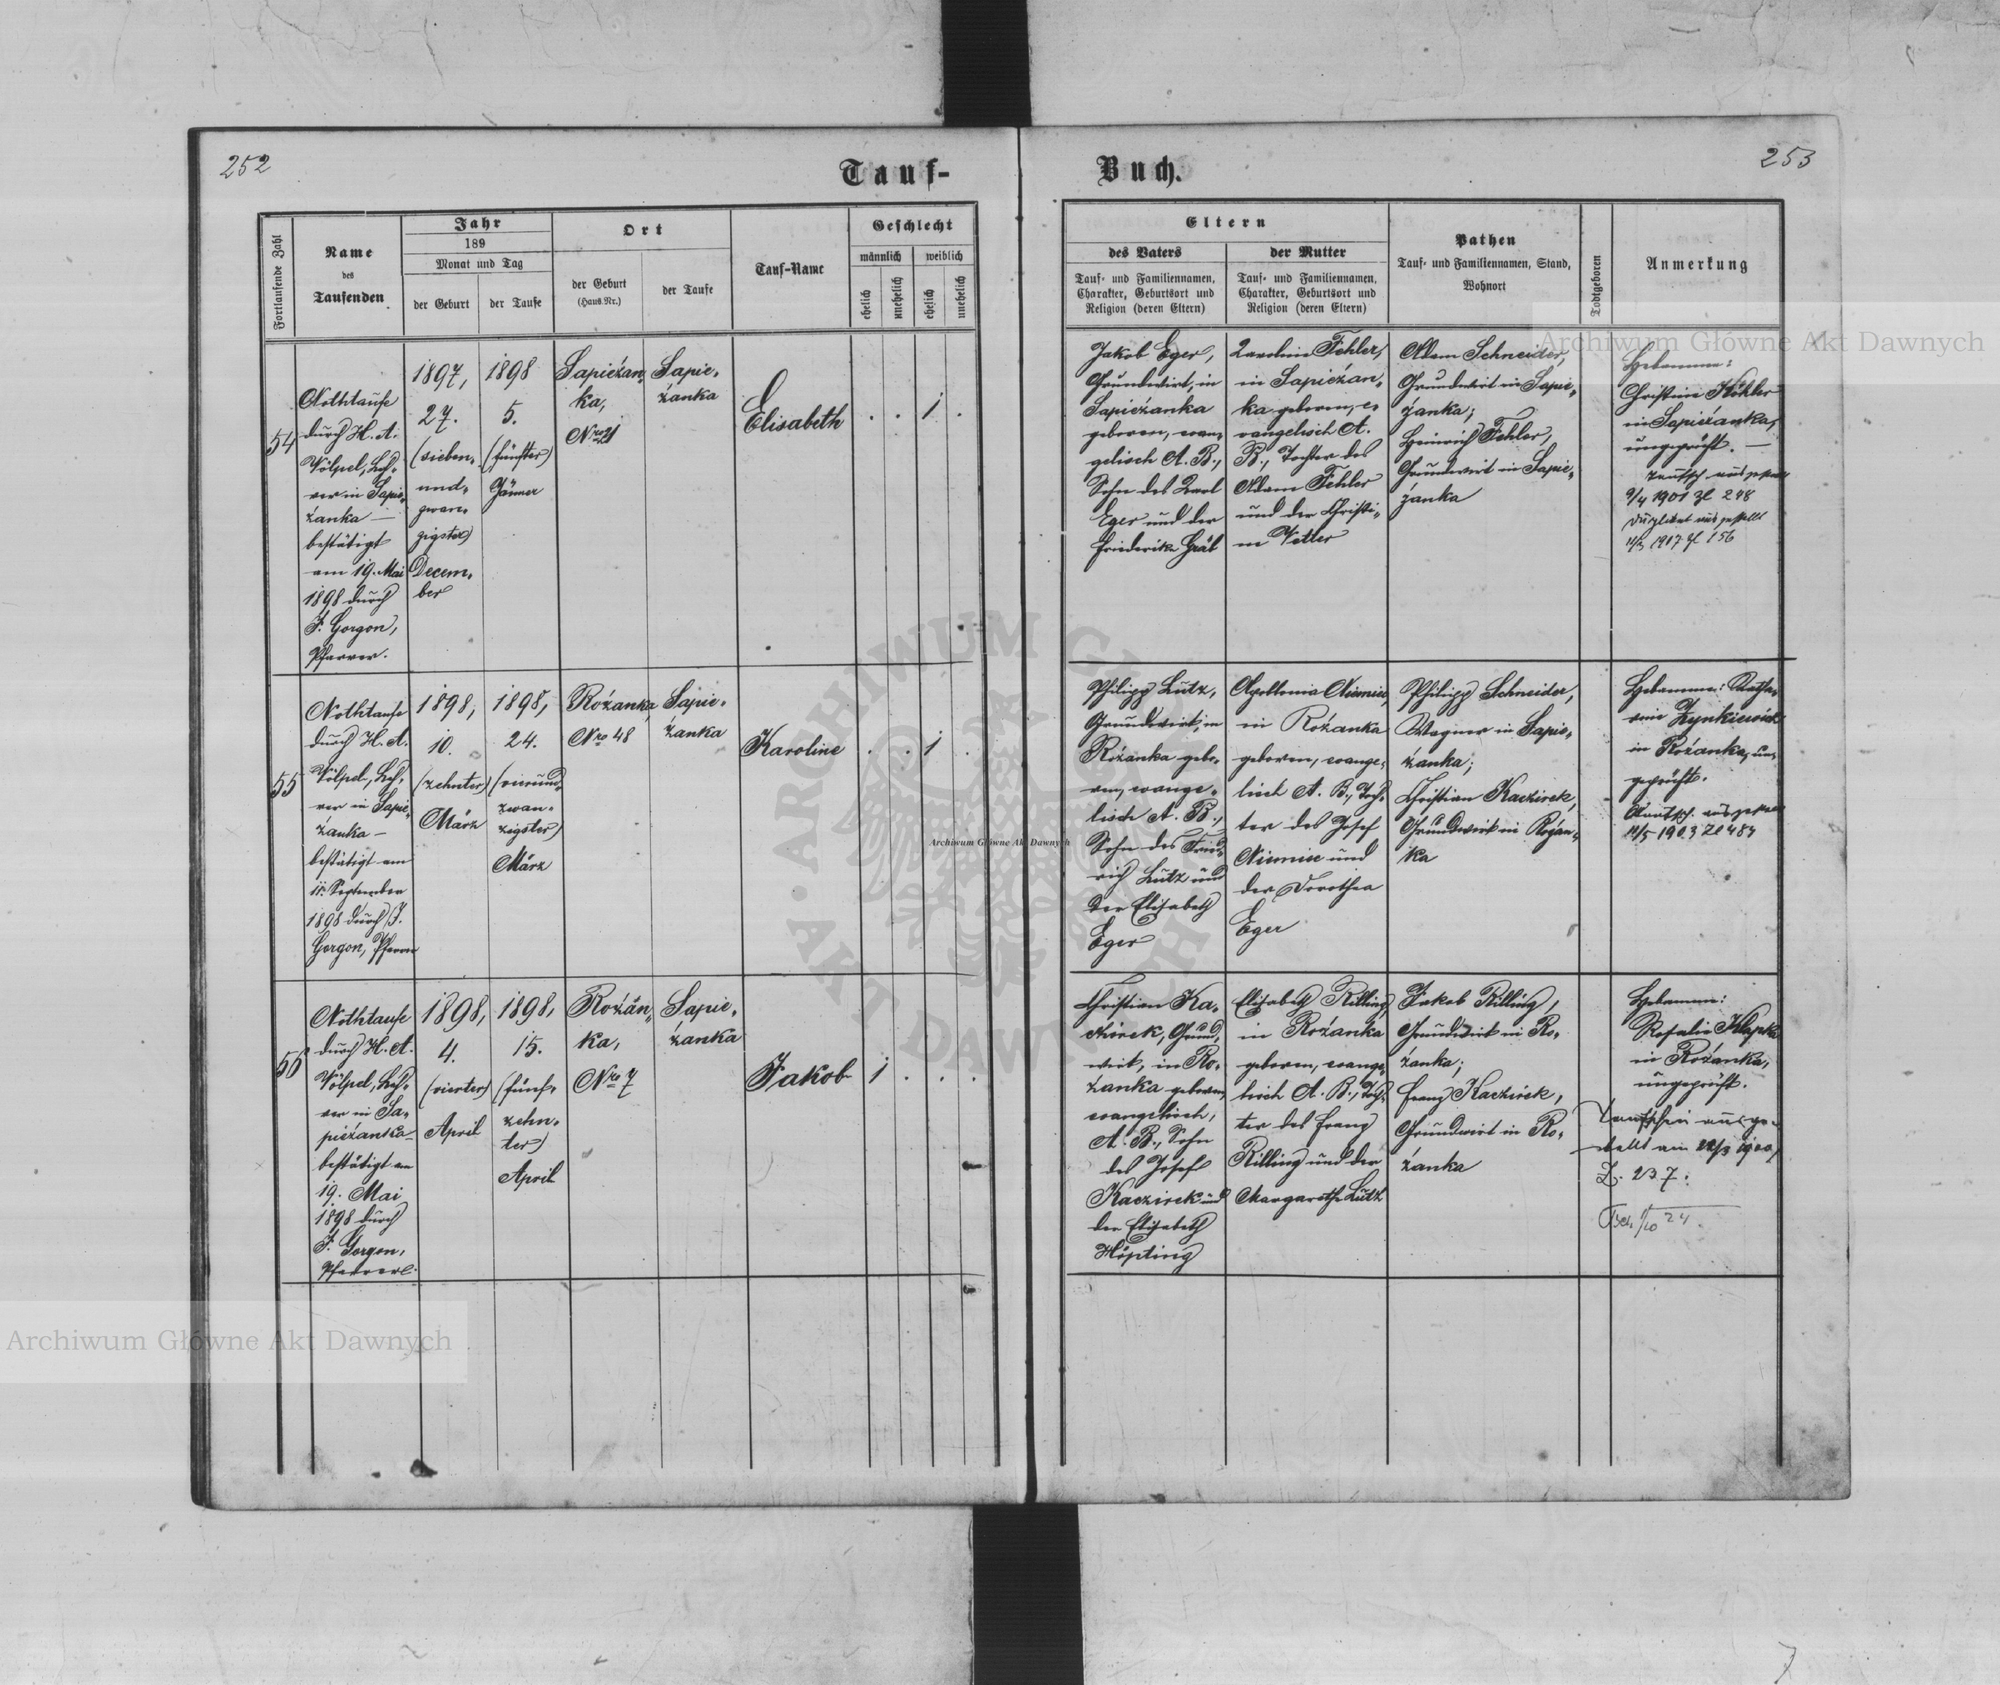 252
Tauf-
Fortlaufende Zahl
Name
des
Taufenden
Jahr
189
Monat und Tag
der Geburt
der Taufe
Ort
der Geburt
(Haus-Nr.)
der Taufe
Tauf-Name
Geschlecht
männlich
weiblich
ehelich
unehelich
ehelich
unehelich
54
Nothtaufe
durch H. A.
Völpel, Leh-
rer in Sapie-
żanka —
bestätigt
am 19. Mai
1898 durch
J. Gorgon,
Pfarrer.
1897,
27.
(sieben-
und-
zwan-
zigster)
Decem-
ber
1898
5.
(fünfter)
Jänner
Sapieżan-
ka,
Nro 21
Sapie-
żanka
Elisabeth
. . 1 .
55
Nothtaufe
durch H. A.
Völpel, Leh-
rer in Sapie-
żanka —
bestätigt am
11. September
1898 durch J.
Gorgon, Pfarrer
1898,
10.
(zehnter)
März
1898,
24.
(vierund-
zwan-
zigster)
März
Rożanka
Nro 48
Sapie-
żanka
Karoline
. . 1 .
56
Nothtaufe
durch H. A.
Völpel, Leh-
rer in Sa-
pieżanka —
bestätigt am
19. Mai
1898 durch
J. Gorgon,
Pfarrer.
1898,
4.
(vierter)
April
1898,
15.
(fünf-
zehn-
ter)
April
Rożan-
ka,
Nro 7
Sapie-
żanka
Jakob
1 . . .
253
Buch.
Eltern
des Vaters
Tauf- und Familiennamen,
Charakter, Geburtsort und
Religion (deren Eltern)
der Mutter
Tauf- und Familiennamen,
Charakter, Geburtsort und
Religion (deren Eltern)
Pathen
Tauf- und Familiennamen, Stand,
Wohnort
Todtgeboren
Anmerkung
Jakob Eger,
Grundwirt, in
Sapieżanka
geboren, evan-
gelisch A. B.,
Sohn des Karl
Eger und der
Friederike Gräb
Karolina Fehler,
in Sapieżan-
ka geboren, e-
vangelisch A.
B., Tochter des
Adam Fehler
und der Christi-
ne Vetter
Adam Schneider,
Grundwirt in Sapie-
żanka;
Heinrich Fehler,
Grundwirt in Sapie-
żanka
Hebamme:
Christine Köhler
in Sapieżanka,
ungeprüft. —
9/4 1901 Zl 248
Duplikat ausgestellt
1917 Zl 156
Philipp Lutz,
Grundwirt, in
Rożanka gebo-
ren, evange-
lisch A. B.,
Sohn des Fried-
rich Lutz und
der Elisabeth
Eger
Apollonia Niemiec,
in Rożanka
geboren, evange-
lisch A. B., Toch-
ter des Josef
Niemiec und
der Dorothea
Eger
Philipp Schneider,
Wagner in Sapie-
żanka;
Christian Kaczirek,
Grundwirt in Rożan-
ka
Hebamme: Katha-
rina Zynkiewicz
in Rożanka, un-
geprüft.
14/5 1913 Zl 484
Christian Ka-
czirek, Grund-
wirt, in Ro-
żanka geboren,
evangelisch,
A. B., Sohn
des Josef
Kaczirek und
der Elisabeth
Höpting
Elisabeth Rilling,
in Rożanka
geboren, evange-
lisch A. B., Toch-
ter des Franz
Rilling und der
Margarethe Lutz
Jakob Rilling,
Grundwirt in Ro-
żanka;
Franz Kaczirek,
Grundwirt in Ro-
żanka
Hebamme:
Rosalie Klapka
in Rożanka,
ungeprüft.
Taufschein ausge-
stellt am
Z. 237.
Archiwum Główne Akt Dawnych
Archiwum Główne Akt Dawnych
Archiwum Główne Akt Dawnych
ARCHIWUM GŁÓWNE AKT DAWNYCH